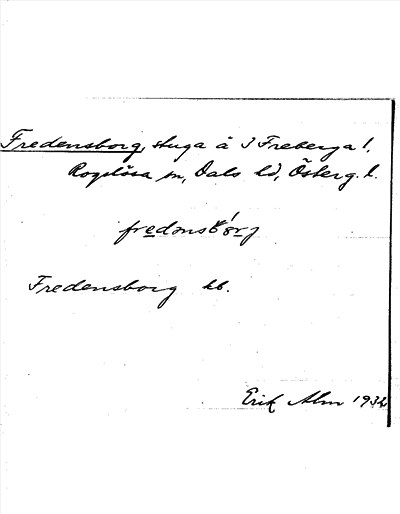 Fredensborg, stuga å 3 Freberga l.
Rogslösa sn, Dals hd, Österg. l.
fredonsbórj
Fredensborg kb.
Erik Alm 1932